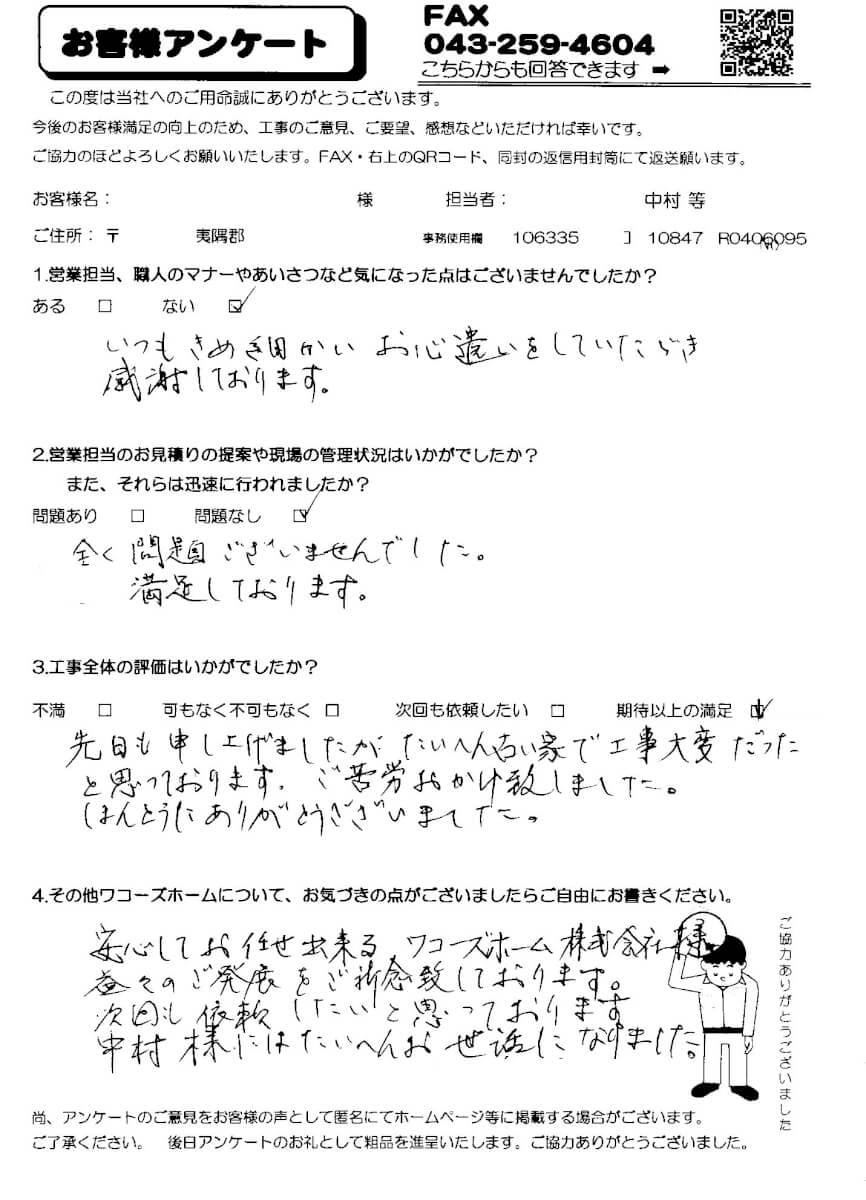 お客様アンケート
FAX
043-259-4604
こちらからも回答できます ➡
この度は当社へのご用命誠にありがとうございます。
今後のお客様満足の向上のため、工事のご意見、ご要望、感想などいただければ幸いです。
ご協力のほどよろしくお願いいたします。FAX・右上のQRコード、同封の返信用封筒にて返送願います。
お客様名： 様 担当者： 中村 等
ご住所：〒 夷隅郡 事務使用欄 106335 ] 10847 R0406095
1.営業担当、職人のマナーやあいさつなど気になった点はございませんでしたか？
ある □ ない ☑
いつもきめ細かい お心遣いをしていただき
感謝しております。
2.営業担当のお見積りの提案や現場の管理状況はいかがでしたか？
また、それらは迅速に行われましたか？
問題あり □ 問題なし ☑
全く問題ございませんでした。
満足しております。
3.工事全体の評価はいかがでしたか？
不満 □ 可もなく不可もなく □ 次回も依頼したい □ 期待以上の満足 ☑
先日も申し上げましたが たいへん古い家で工事大変だった
と思っております。ご苦労おかけ致しました。
ほんとうにありがとうございました。
4.その他ワコーズホームについて、お気づきの点がございましたらご自由にお書きください。
安心してお任せ出来る ワコーズホーム株式会社様
益々のご発展をご祈念致しております。
次回も依頼したいと思っております
中村様にはたいへんお世話になりました。
ご協力ありがとうございました
尚、アンケートのご意見をお客様の声として匿名にてホームページ等に掲載する場合がございます。
ご了承ください。 後日アンケートのお礼として粗品を進呈いたします。ご協力ありがとうございました。